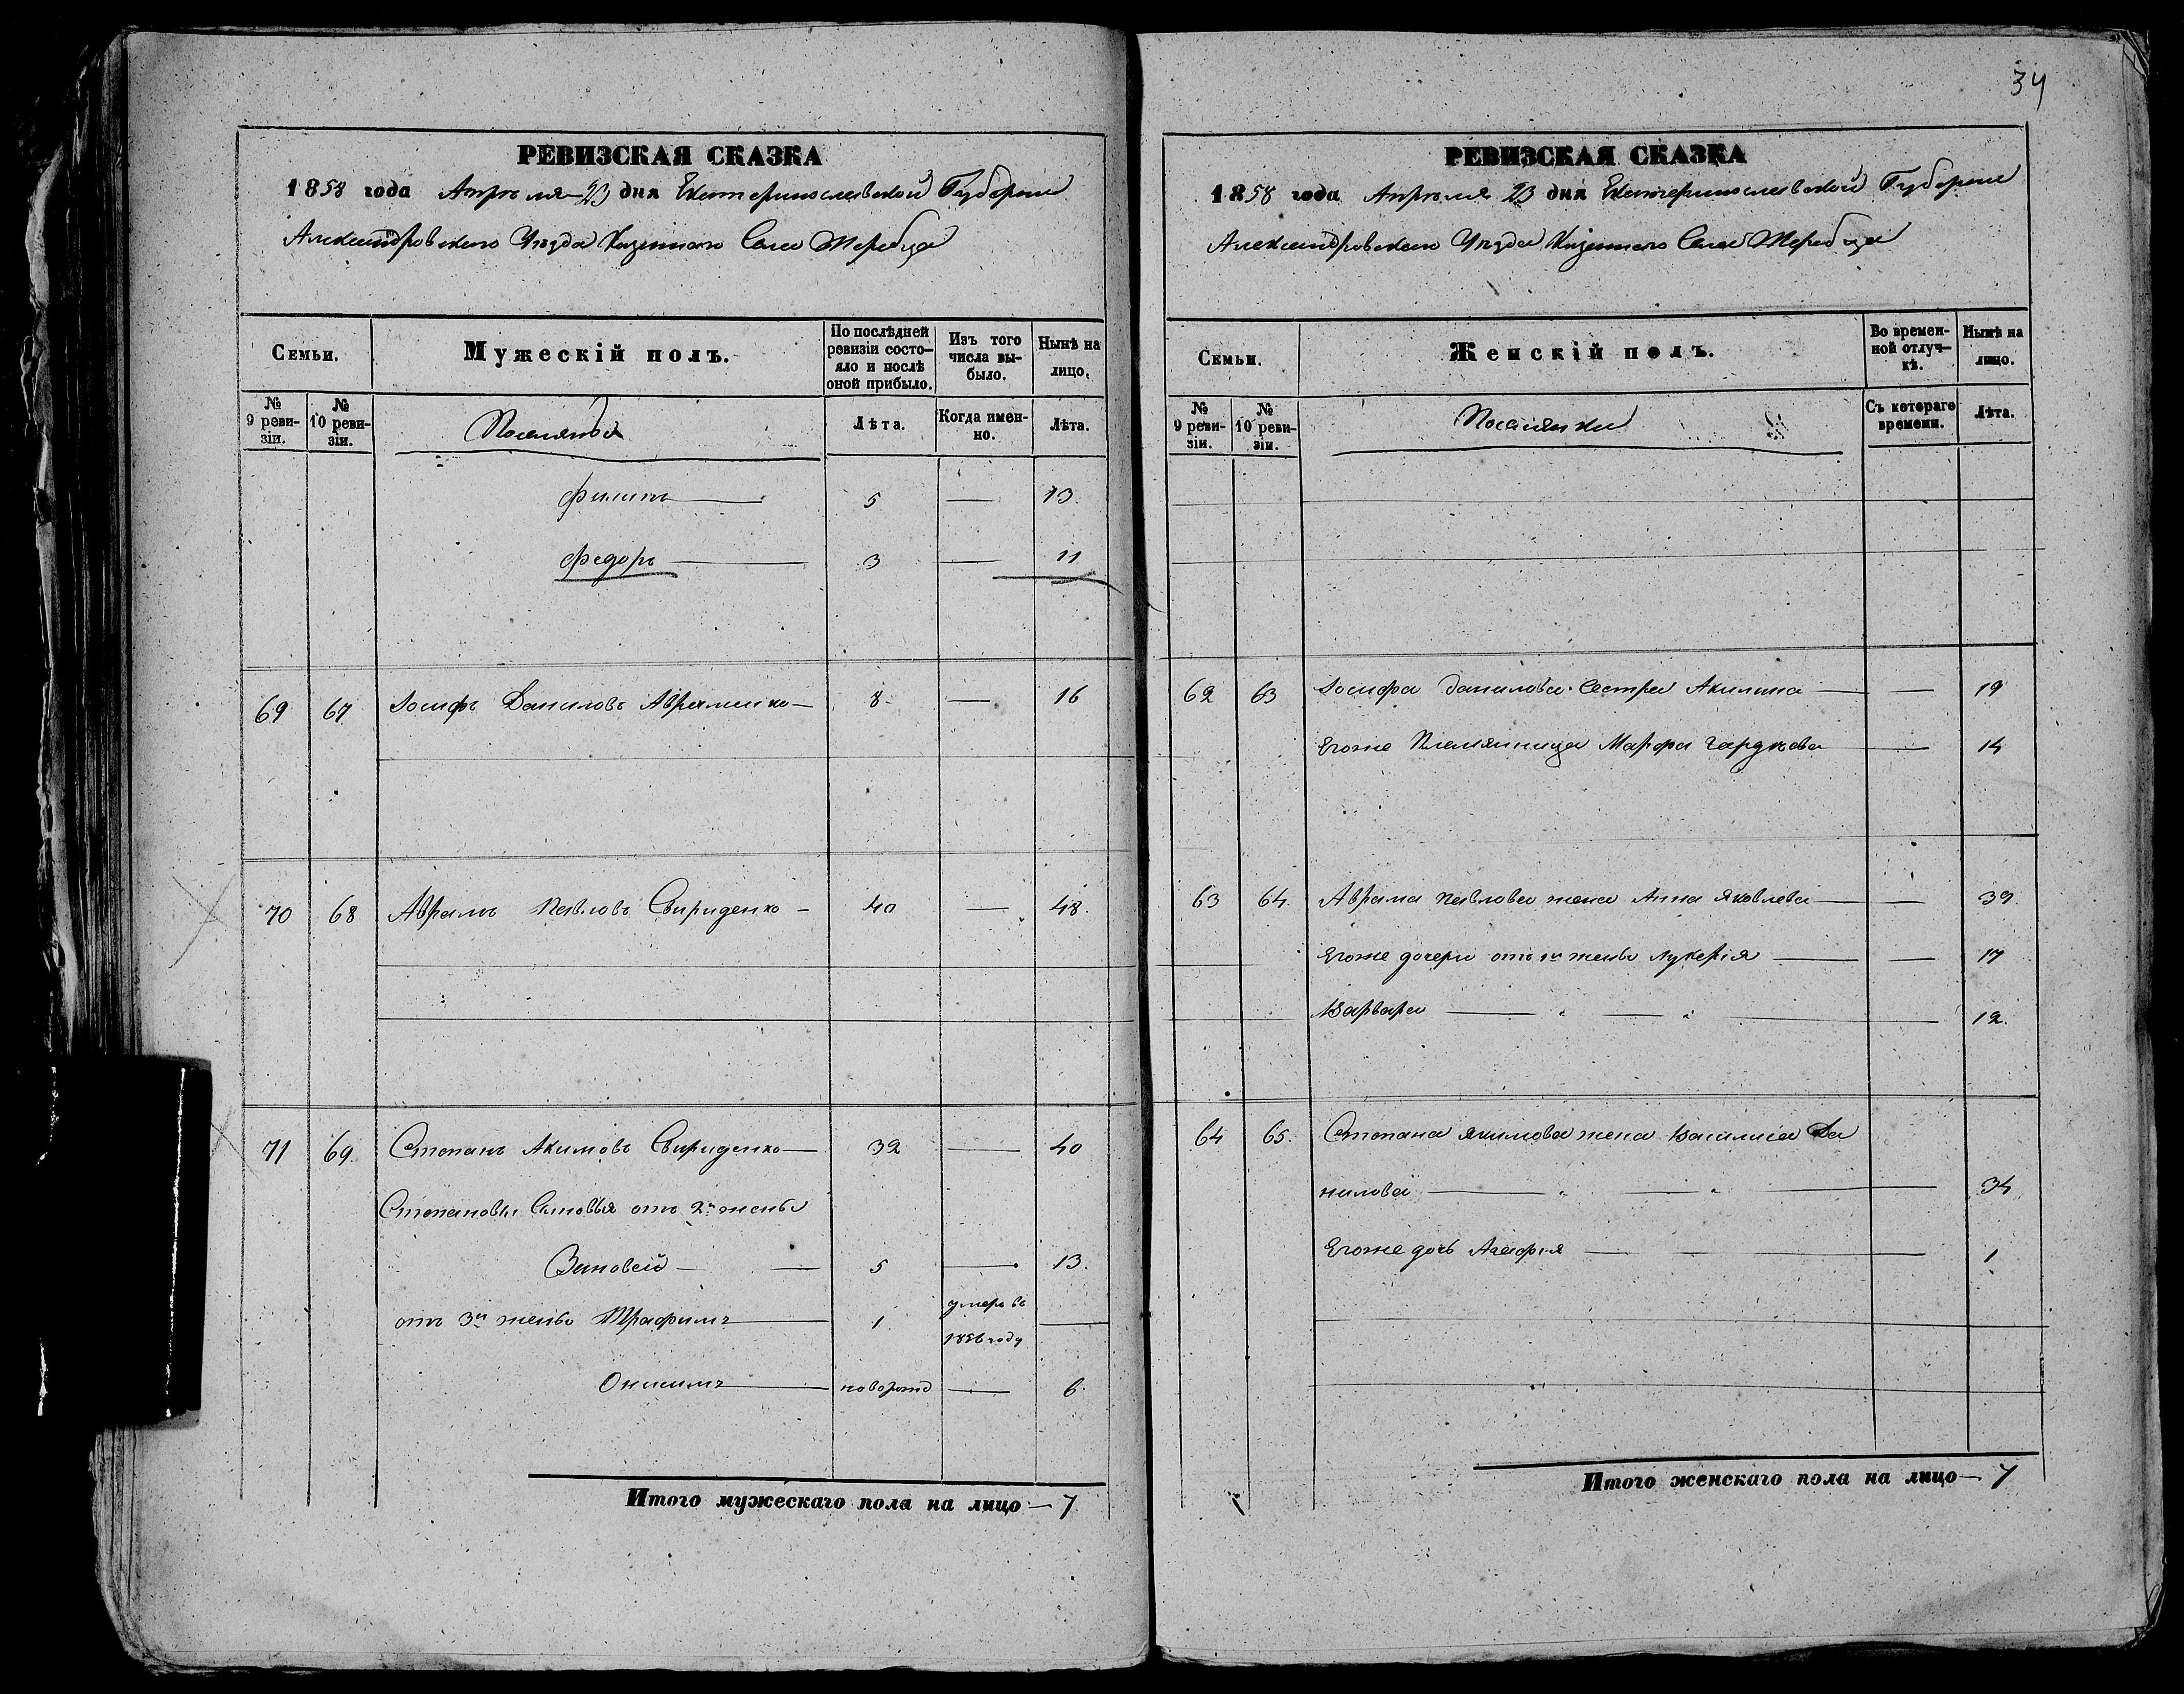 34
РЕВИЗСКАЯ СКАЗКА
1858 года Апрѣля 23 дня Екатеринославской Губерніи
Александровского Уѣзда Казенного Села Жеребца
Семьи.
Мужескій полъ.
По послѣдней ревизіи состо-
яло и послѣ оной прибыло.
Изъ того числа вы-
было.
Нынѣ на лицо.
№ 9 реви-
зіи.
№ 10 реви-
зіи.
Поселянъ
Лѣта.
Когда имен-
но.
Лѣта.
Филипъ — 5 — 13.
Федоръ — 3 — 11
69 67 Іосифъ Даниловъ Авраменко — 8 — 16
70 68 Аврамъ Павловъ Свириденко — 40 — 48.
71 69. Степанъ Акимовъ Свириденко — 32 — 40
Степановы Сыновья отъ 2й жены
Зиновей — 5 — 13.
отъ 3й жены Трафимъ — 1 умеръ въ —
1856 году
Онисимъ — новорожд — 6.
Итого мужескаго пола на лицо — 7
РЕВИЗСКАЯ СКАЗКА
1858 года Апрѣля 23 дня Екатеринославской Губерніи
Александровского Уѣзда Казенного Села Жеребца
Семьи.
Женскій полъ.
Во времен-
ной отлуч-
кѣ.
Нынѣ на лицо.
№ 9 реви-
зіи.
№ 10 реви-
зіи.
Поселянки
Съ котораго времени.
Лѣта.
62 63 Іосифа Данилова Сестра Акилина — — 19
Егоже Племянница Марфа — 14
63 64. Аврама Павлова жена Анна Яковлева — — 39.
Егоже дочери отъ 1й жены Лукерія — — 17
Варвара — " — " — 12.
64 65. Степана Якимова жена Василиса Да
нилова — " — " — 34.
Егоже дочь Агафія — — 1
Итого женскаго пола на лицо — 7